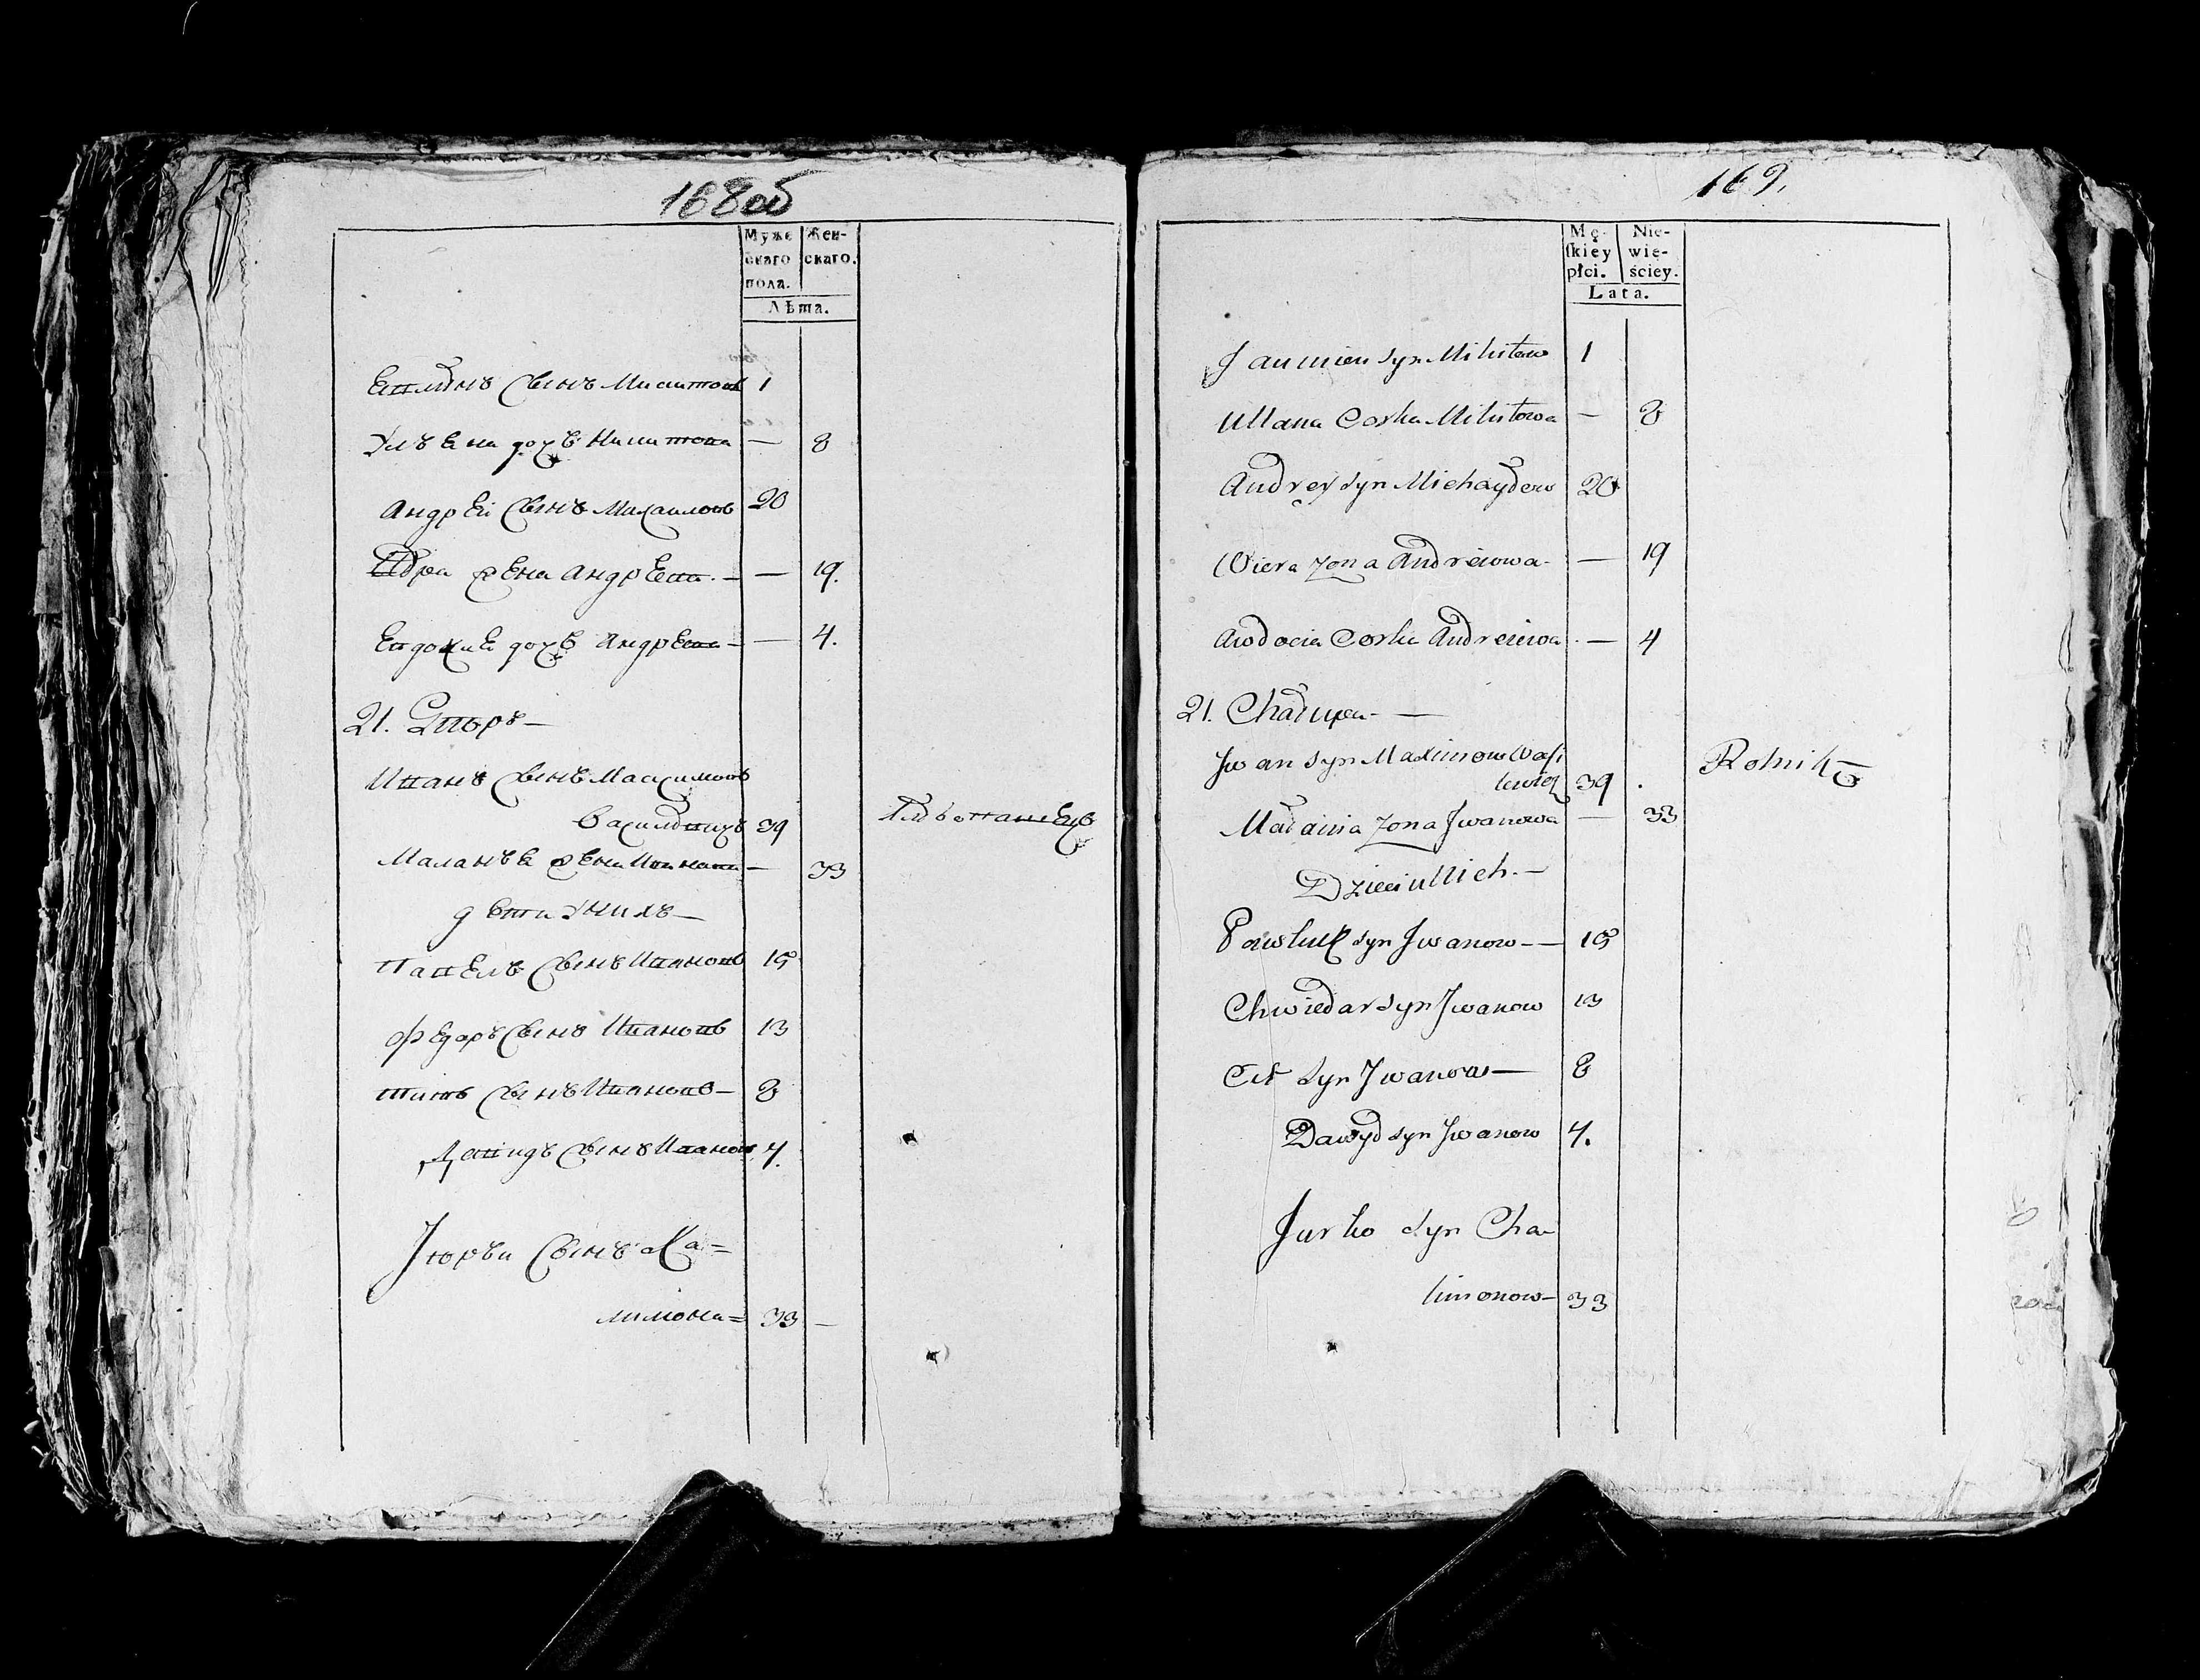 168об
Муже
скаго
пола.
Жен-
скаго.
Лѣта.
сынъ 1
дочь — 8
Андрей сынъ Михаиловъ 20
жена Андреева — — 19.
Евдокиѣ дочь Андреева — — 4.
21. Дворъ —
Иванъ сынъ Максимовъ
Василѣвичъ 39
Маланьѣ жена Иванова — 33
дети у нихъ —
Павелъ сынъ Ивановъ 15
Федаръ сынъ Ивановъ 13
Титъ сынъ Ивановъ — 8
Давидъ сынъ Ивановъ 4.
Юрьи сынъ Ха=
лимона= 33 —
169.
Mę-
ſkiey
płci.
Nie-
wie-
ściey.
Lata.
syn 1
Ullana Corka — 8
Andrey syn Michayłow 20
Wiera zona Andreiowa — — 19
Awdocia Corka Andreiowa — 4
21. Chałupa — —
Jwan syn Maximow Wasi
lewicz 39
Rolnik
Małania zona Jwanowa — 33
Dzieci u Nich. —
Pawluk syn Jwanow — — 15
Chwiedar syn Jwanow 13
Cit syn Jwanow — 8
Dawyd syn Jwanow 4.
Jurko syn Cha
limonow — 33